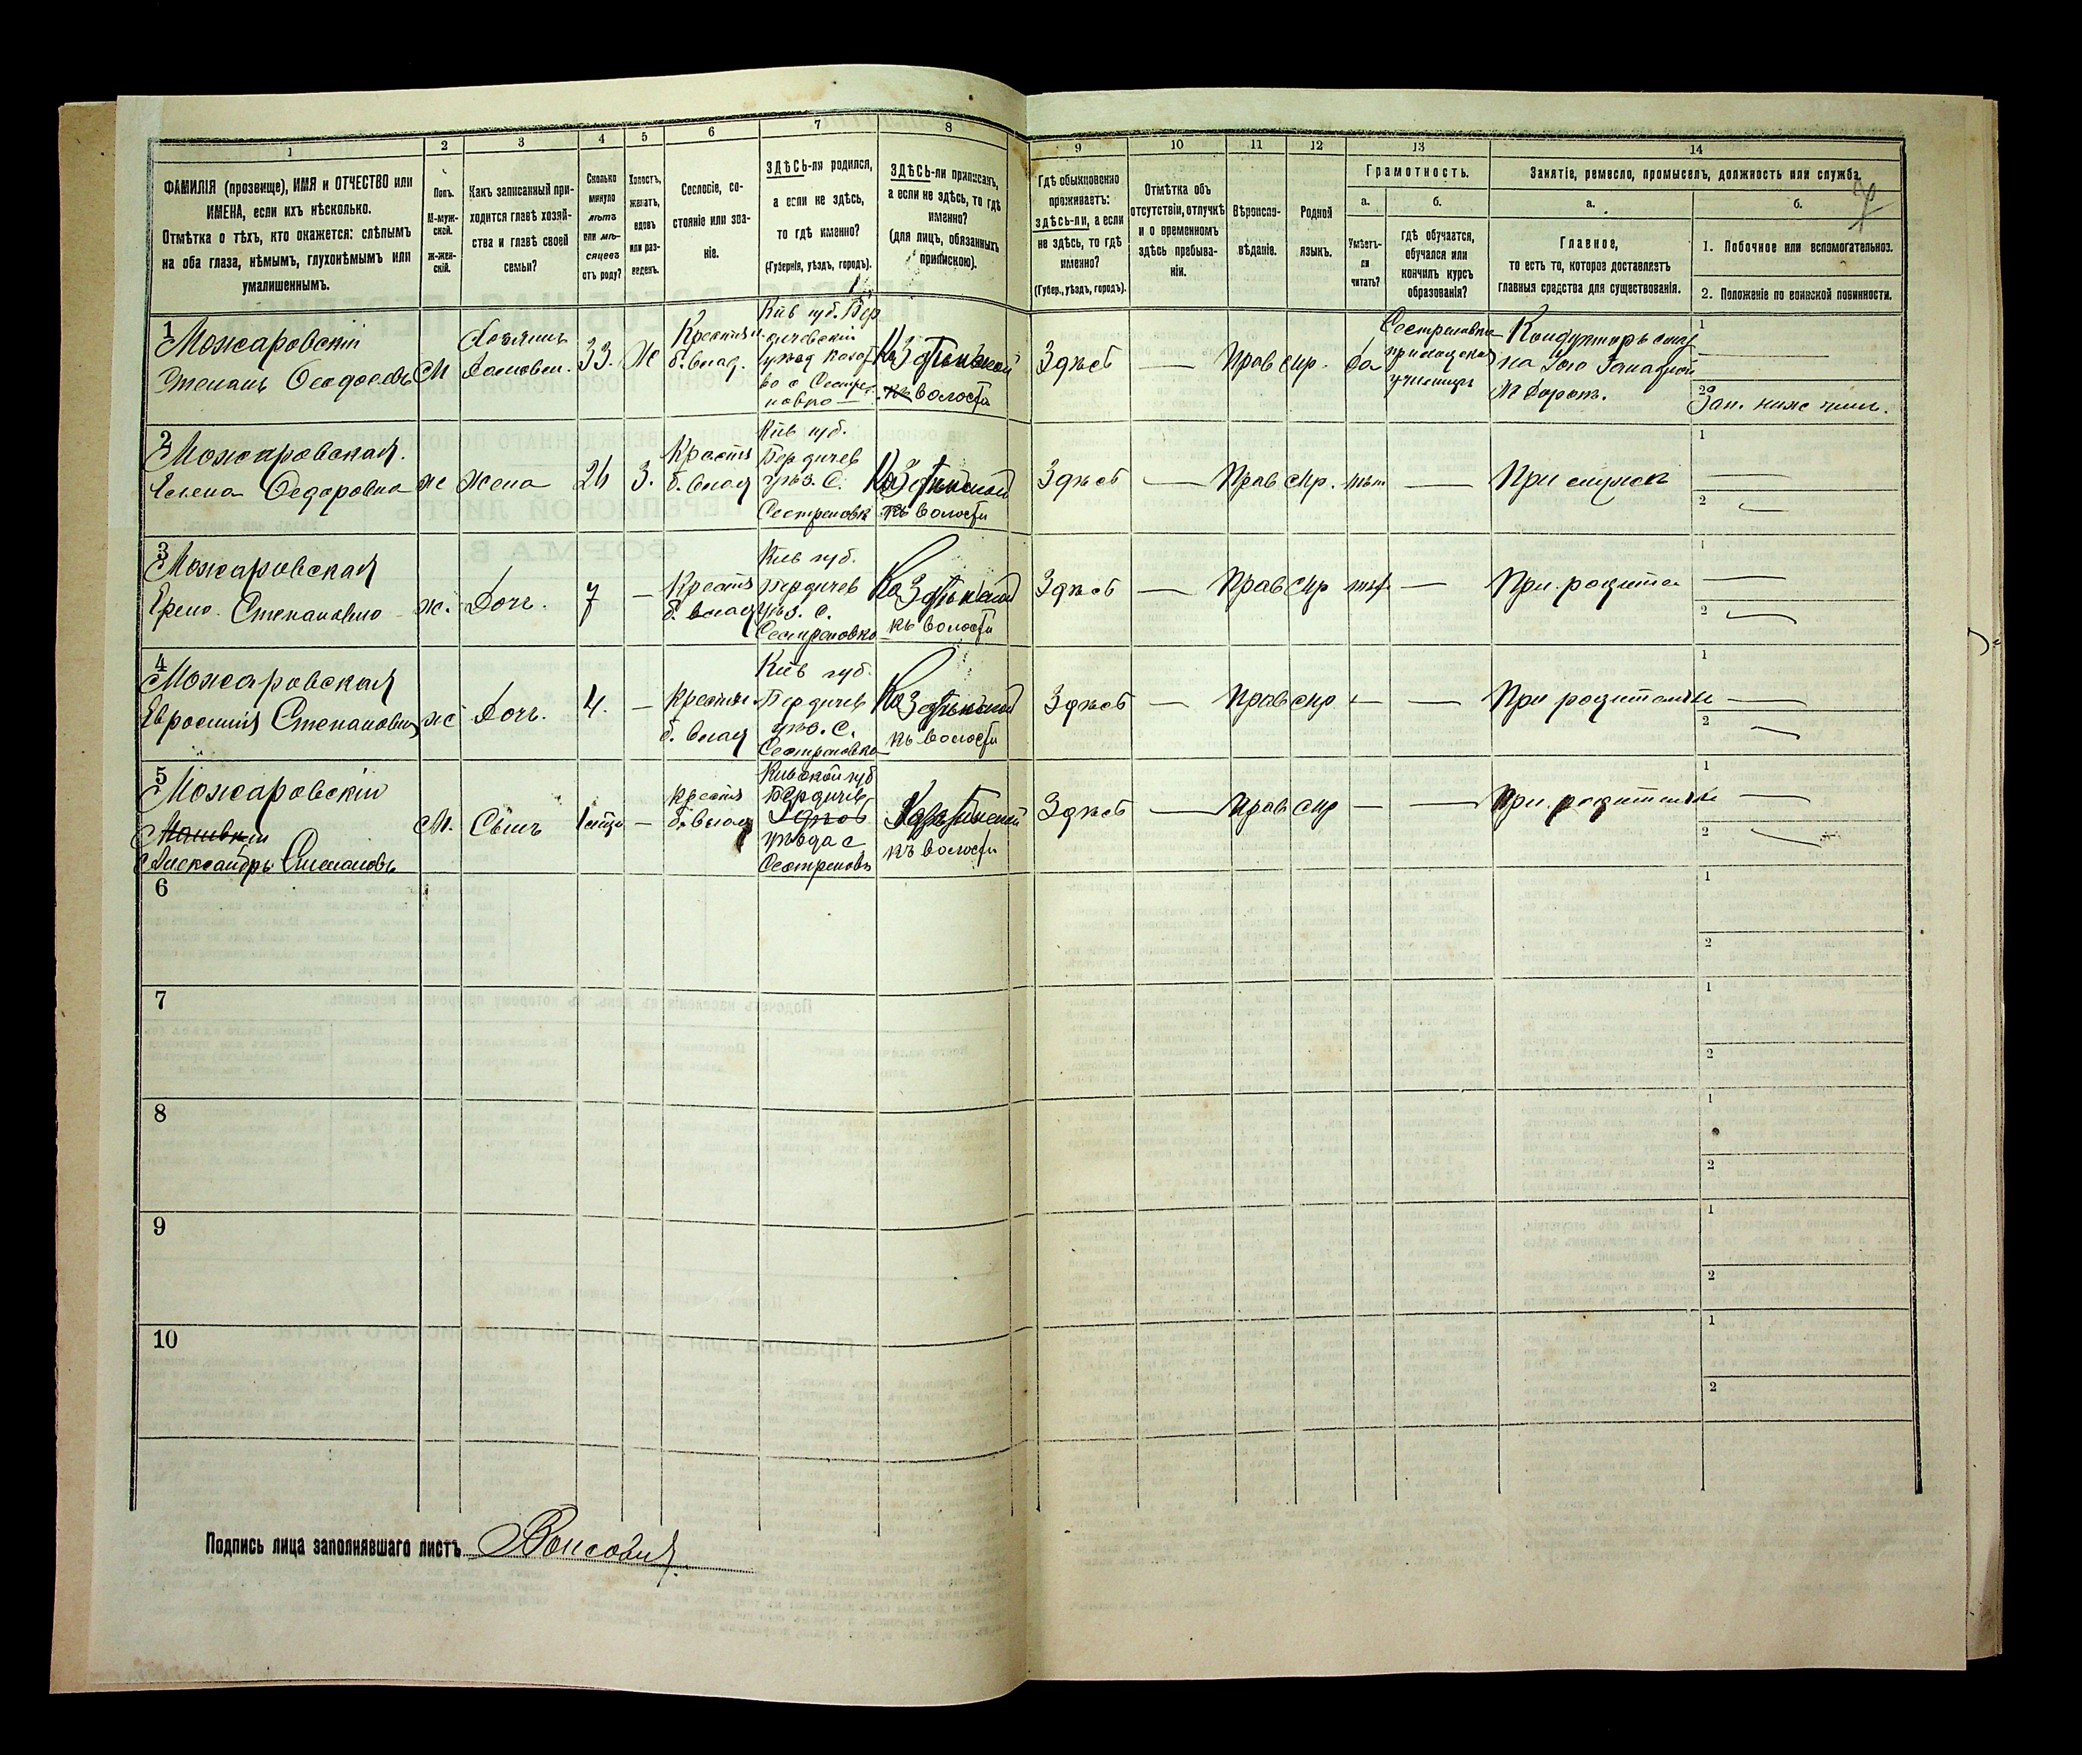 1
2
3
4
5
6
7
8
ФАМИЛІЯ (прозвище), ИМЯ и ОТЧЕСТВО или
ИМЕНА, если ихъ нѣсколько.
Отмѣтка о тѣхъ, кто окажется: слѣпымъ
на оба глаза, нѣмымъ, глухонѣмымъ или
умалишеннымъ.
Полъ.
М-муж-
ской.
ж-жен-
скій.
Какъ записанный при-
ходится главѣ хозяй-
ства и главѣ своей
семьи?
Сколько
минуло
лѣтъ
или мѣ-
сяцевъ
отъ роду?
Холостъ,
женатъ,
вдовъ
или раз-
веденъ.
Сословіе, со-
стояніе или зва-
ніе.
ЗДѢСЬ-ли родился,
а если не здѣсь,
то гдѣ именно?
(Губернія, уѣздъ, городъ).
ЗДѢСЬ-ли приписанъ,
а если не здѣсь, то гдѣ
именно?
(для лицъ, обязанныхъ
припискою).
9
10
11
12
13
14
Гдѣ обыкновенно
проживаетъ:
здѣсь-ли, а если
не здѣсь, то гдѣ
именно?
(Губер., уѣздъ, городъ).
Отмѣтка объ
отсутствіи, отлучкѣ
и о временномъ
здѣсь пребыва-
ніи.
Вѣроиспо-
вѣданіе.
Родной
языкъ.
Грамотность.
а.
б.
Умѣетъ-
ли
читать?
Гдѣ обучается,
обучался или
кончилъ курсъ
образованія?
Занятіе, ремесло, промыселъ, должность или служба.
а.
б.
Главное,
то есть то, которое доставляетъ
главныя средства для существованія.
1. Побочное или вспомогательное.
2. Положеніе по воинской повинности.
1
Можаровскій
Степанъ Феодосіевъ
М
Хозяинъ
33.
Ж
Крестьян.
б. влад.
Кіев губ. Бер
дичевскій
уѣзд
с Сестре-
новка
волости
Здѣсь
—
Прав
мр.
да
Сестреновка
приходской
училищѣ
Кондукторъ
на Юго Западной
Ж дорогѣ.
1
—
2
2
Можаровская.
Елена Федоровна
ж
жена
24
З.
Крестья
б. влад
Кіев губ.
Бердичев
уѣз. С.
Сестреновк
волости
Здѣсь
—
Прав
мр.
нѣт
—
При мужѣ
1
—
2
3
Можаровская
Степановна
ж.
Дочь.
7
—
Крестья
б. влад
Кіев губ.
Бердичев
уѣз. С.
Сестреновка
къ волости
Здѣсь
—
Прав
мр
нѣт
—
При родите
1
—
2
4
Можаровская
Евросинія Степановна
ж
Дочь.
4.
—
Крестья
б. влад
Кіев губ.
Бердичев
уѣз. С.
Сестреновка
къ волости
Здѣсь
—
Прав
мр
—
—
При родителях
1
—
2
5
Можаровскій
Александръ Степановъ
М.
Сынъ
—
Крестья
б. влад
Кіевской губ
Бердичев
уѣзда с
Сестреновк
къ волости
Здѣсь
—
Прав
мр
—
—
При родителях
1
—
2
6
1
2
7
1
2
8
1
2
9
1
2
10
1
2
Подпись лица заполнявшаго листъ